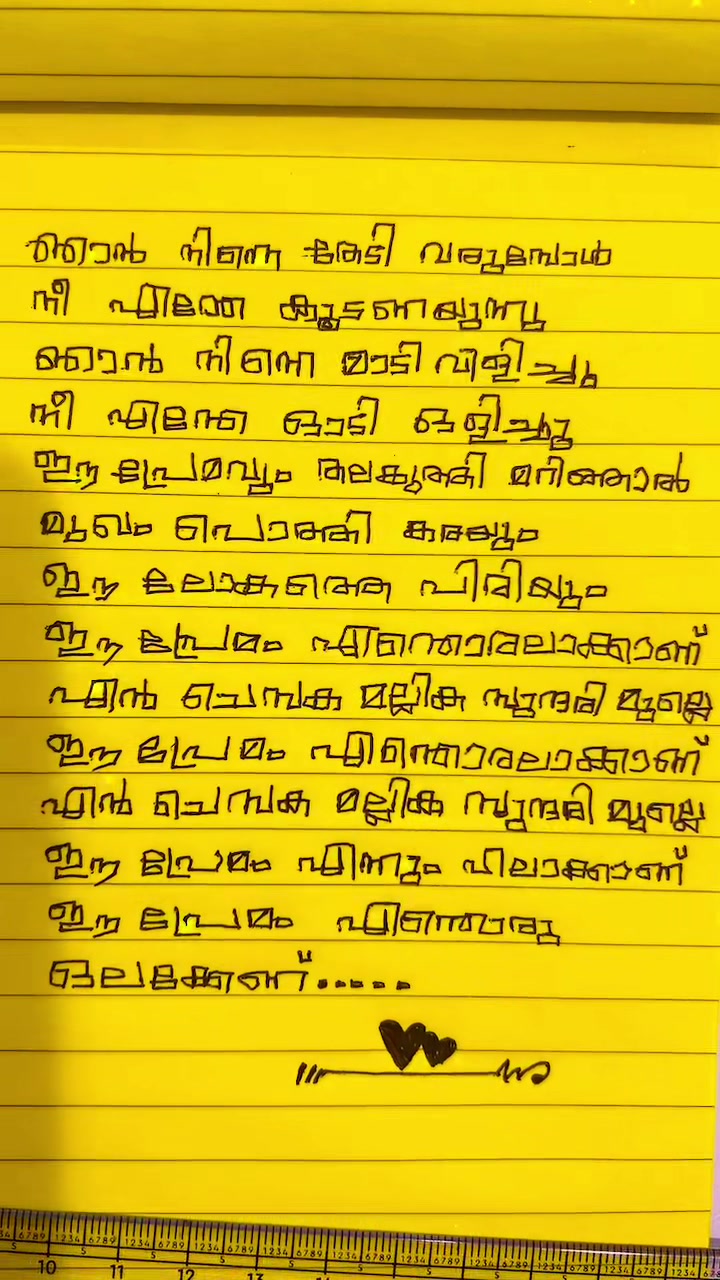 ഞാൻ നിന്നെ തേടി വരുമ്പോൾ
നീ എന്തേ കൂടണയുന്നു
ഞാൻ നിന്നെ മാടി വിളിച്ചു
നീ എന്തേ ഓടി ഒളിച്ചു
ഈ പ്രേമവും തലകുത്തി മറിഞ്ഞാൽ
മുഖം പൊത്തി കരയും
ഈ ലോകത്തെ പിരിയും
ഈ പ്രേമം എന്തൊരലാക്കാണ്
എൻ ചെമ്പക മല്ലിക സുന്ദരി മുല്ലെ
ഈ പ്രേമം എന്തൊരലാക്കാണ്
എൻ ചെമ്പക മല്ലിക സുന്ദരി മുല്ലെ
ഈ പ്രേമം എന്നും പിലാക്കാണ്
ഈ പ്രേമം എന്തൊരു
ഒലക്കേണ്.....
10 11 12 13